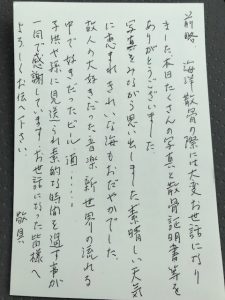 前略 海洋散骨の際には大変お世話になり
ました本日たくさんの写真と散骨証明書等を
ありがとうございました
写真をみながら思い出しました。素晴しい天気
に恵まれきれいな海もおだやかでした。
故人の大好きだった音楽、新世界の流れる
中で好きだったビール、酒……
子供や孫に見送られ素的な時間を過す事が
一同で感謝しています。お世話になった皆様へ
よろしくお伝へ下さい。
敬具